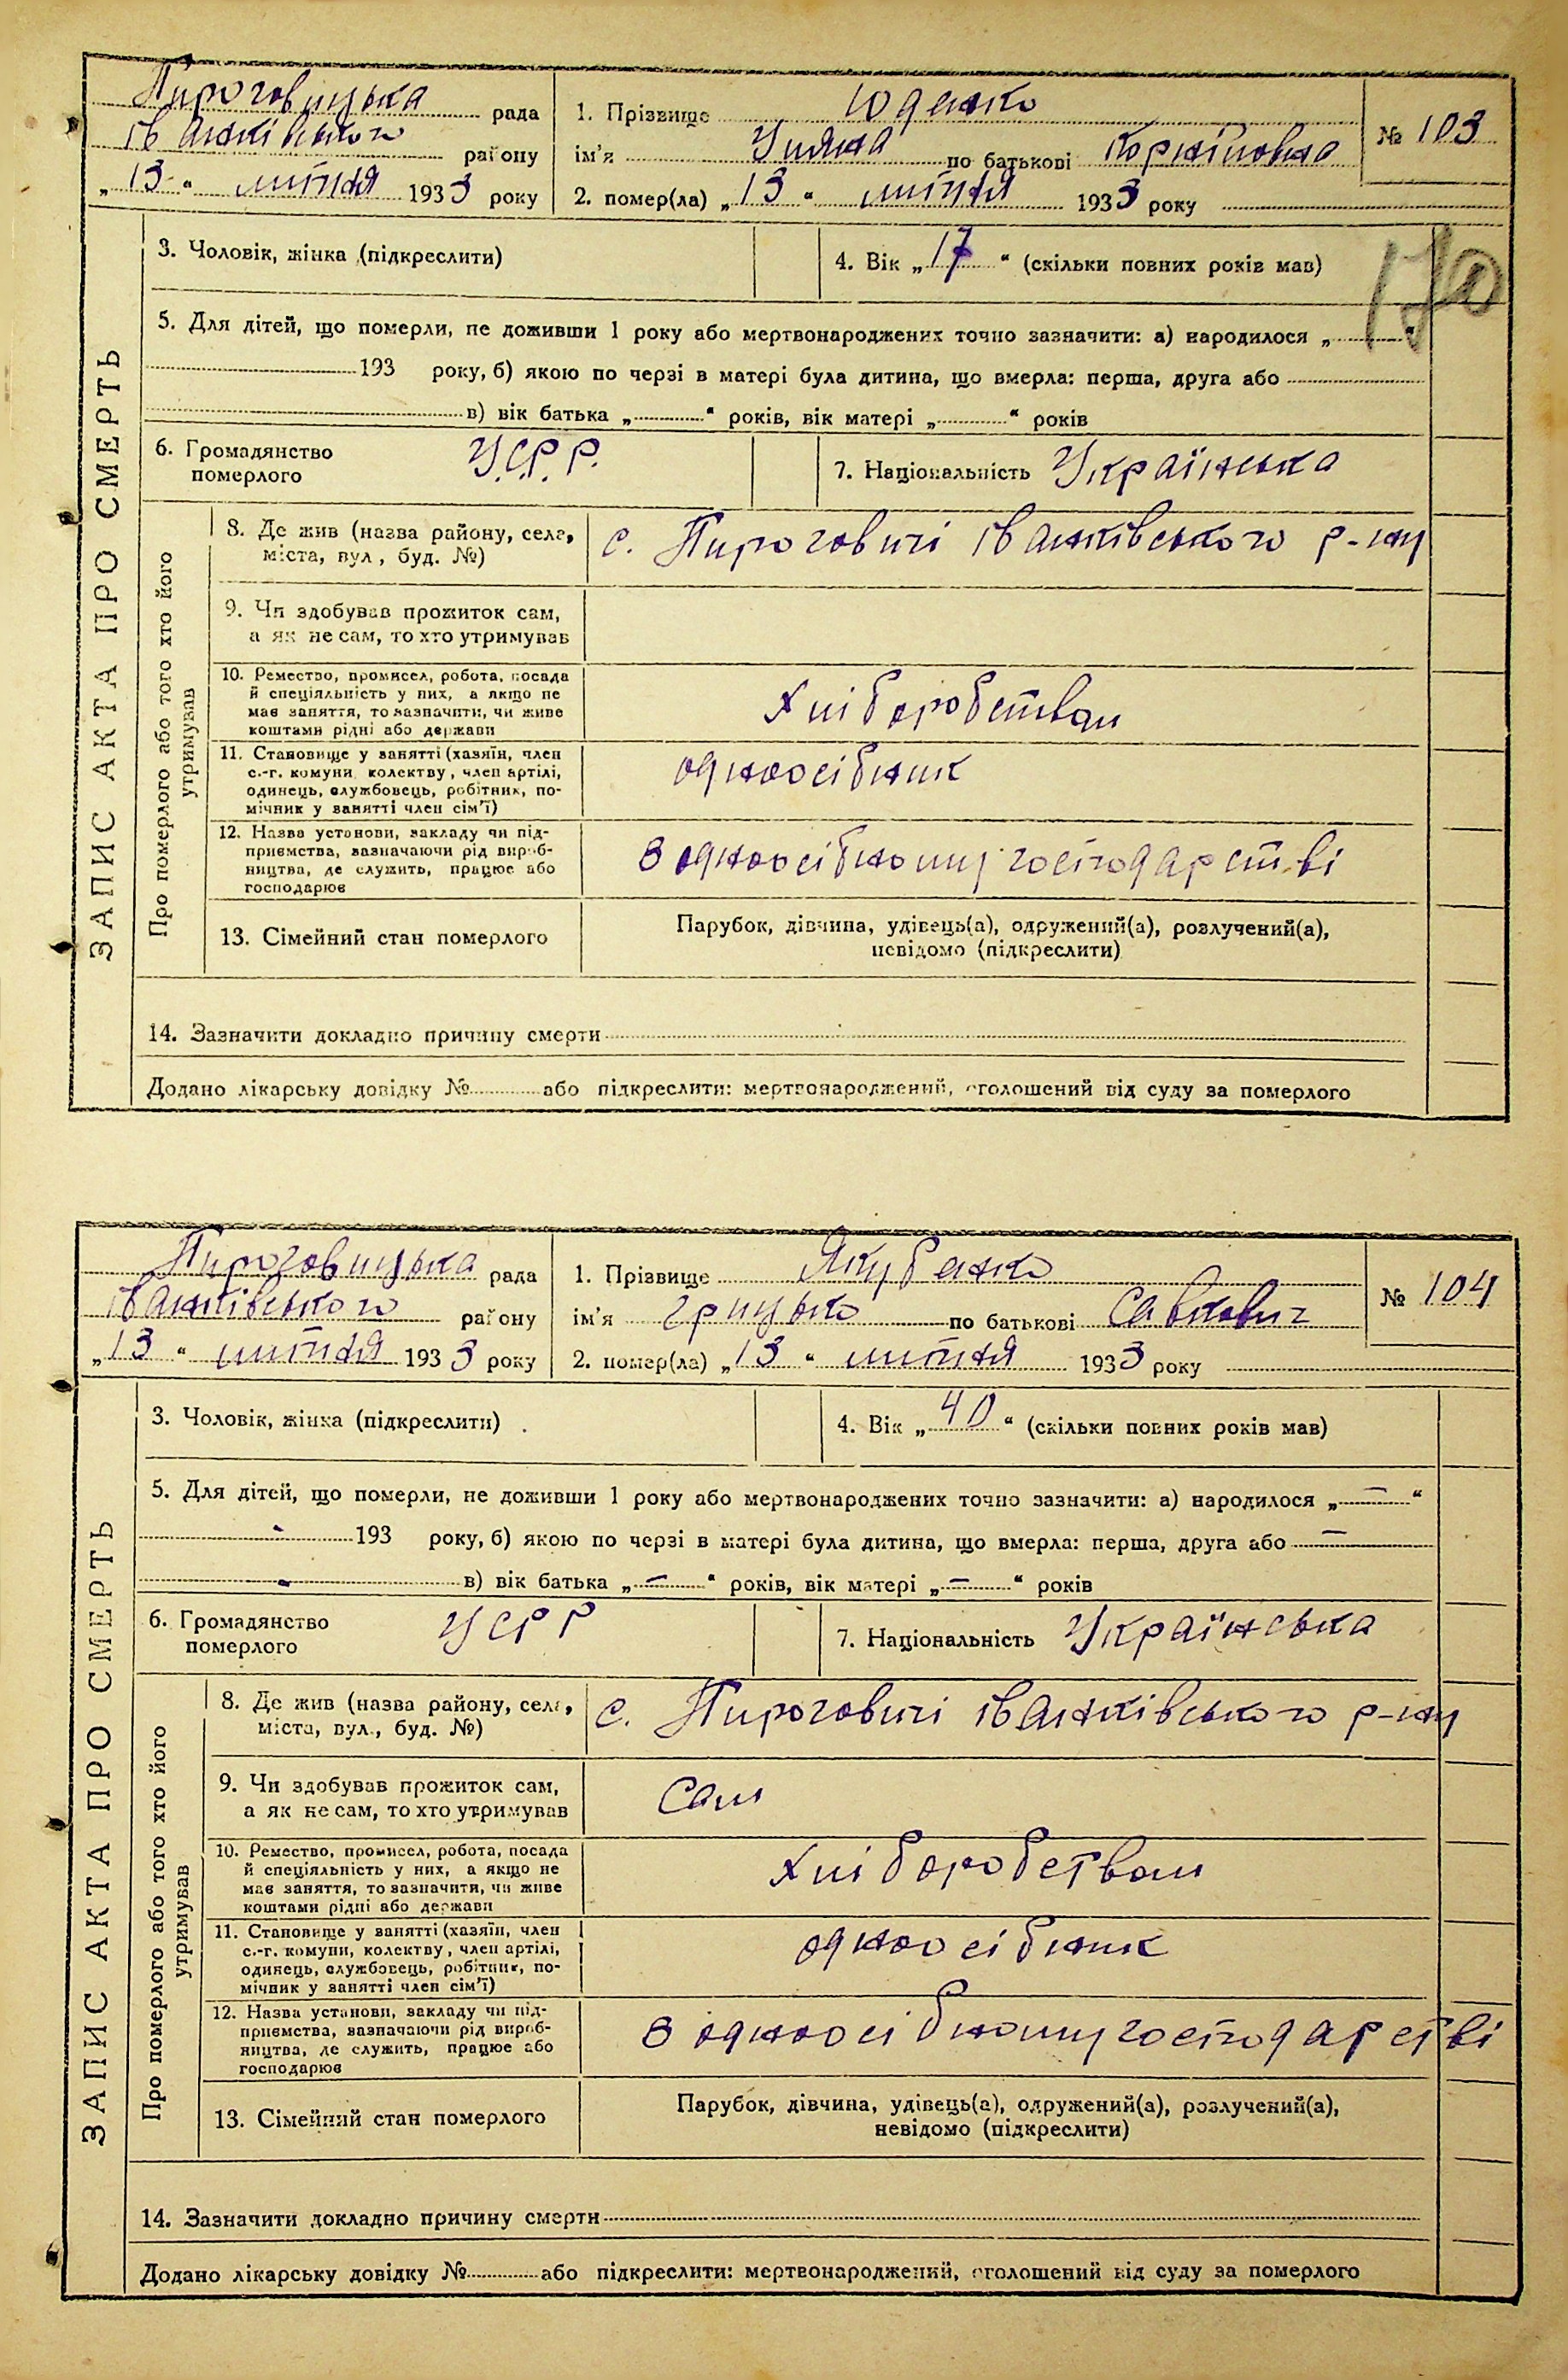 ЗАПИС АКТА ПРО СМЕРТЬ
Пироговицька рада
Іванківського району
„13“ липня 1933 року
1. Прізвище Юденко
ім'я Уляна по батькові Корніївна
№ 103
2. помер(ла) „13“ липня 1933 року
3. Чоловік, жінка (підкреслити)
4. Вік „17“ (скільки повних років мав)
170
5. Для дітей, що померли, не доживши 1 року або мертвонароджених точно зазначити: а) народилося „ “
193 року, б) якою по черзі в матері була дитина, що вмерла: перша, друга або
в) вік батька „ “ років, вік матері „ “ років
6. Громадянство померлого У.С.Р.Р.
7. Національність Українська
Про померлого або того хто його утримував
8. Де жив (назва району, села, міста, вул., буд. №) с. Пироговичі Іванківського р-ну
9. Чи здобував прожиток сам,
а як не сам, то хто утримував
10. Ремество, промисел, робота, посада
й спеціяльність у них, а якщо не
має заняття, то зазначити, чи живе
коштами рідні або держави
Хліборобством
11. Становище у занятті (хазяїн, член
с.-г. комуни, колектву, член артілі,
одинець, службовець, робітник, по-
мічник у занятті член сім'ї)
одноосібник
12. Назва установи, закладу чи під-
приємства, зазначаючи рід вироб-
ництва, де служить, працює або
господарює
в одноосібному господарстві
13. Сімейний стан померлого
Парубок, дівчина, удівець(а), одружений(а), розлучений(а),
невідомо (підкреслити)
14. Зазначити докладно причину смерти
Додано лікарську довідку № або підкреслити: мертвонароджений, оголошений від суду за померлого
ЗАПИС АКТА ПРО СМЕРТЬ
Пироговицька рада
Іванківського району
„13“ липня 1933 року
1. Прізвище Якубенко
ім'я Грицько по батькові Савкович
№ 104
2. помер(ла) „13“ липня 1933 року
3. Чоловік, жінка (підкреслити)
4. Вік „40“ (скільки повних років мав)
5. Для дітей, що померли, не доживши 1 року або мертвонароджених точно зазначити: а) народилося „—“
- 193 року, б) якою по черзі в матері була дитина, що вмерла: перша, друга або —
- в) вік батька „—“ років, вік матері „—“ років
6. Громадянство померлого УСРР
7. Національність Українська
Про померлого або того хто його утримував
8. Де жив (назва району, села, міста, вул., буд. №) с. Пироговичі Іванківського р-ну
9. Чи здобував прожиток сам,
а як не сам, то хто утримував
Сам
10. Ремество, промисел, робота, посада
й спеціяльність у них, а якщо не
має заняття, то зазначити, чи живе
коштами рідні або держави
Хліборобством
11. Становище у занятті (хазяїн, член
с.-г. комуни, колектву, член артілі,
одинець, службовець, робітник, по-
мічник у занятті член сім'ї)
одноосібник
12. Назва установи, закладу чи під-
приємства, зазначаючи рід вироб-
ництва, де служить, працює або
господарює
в одноосібному господарстві
13. Сімейний стан померлого
Парубок, дівчина, удівець(а), одружений(а), розлучений(а),
невідомо (підкреслити)
14. Зазначити докладно причину смерти
Додано лікарську довідку № або підкреслити: мертвонароджений, оголошений від суду за померлого